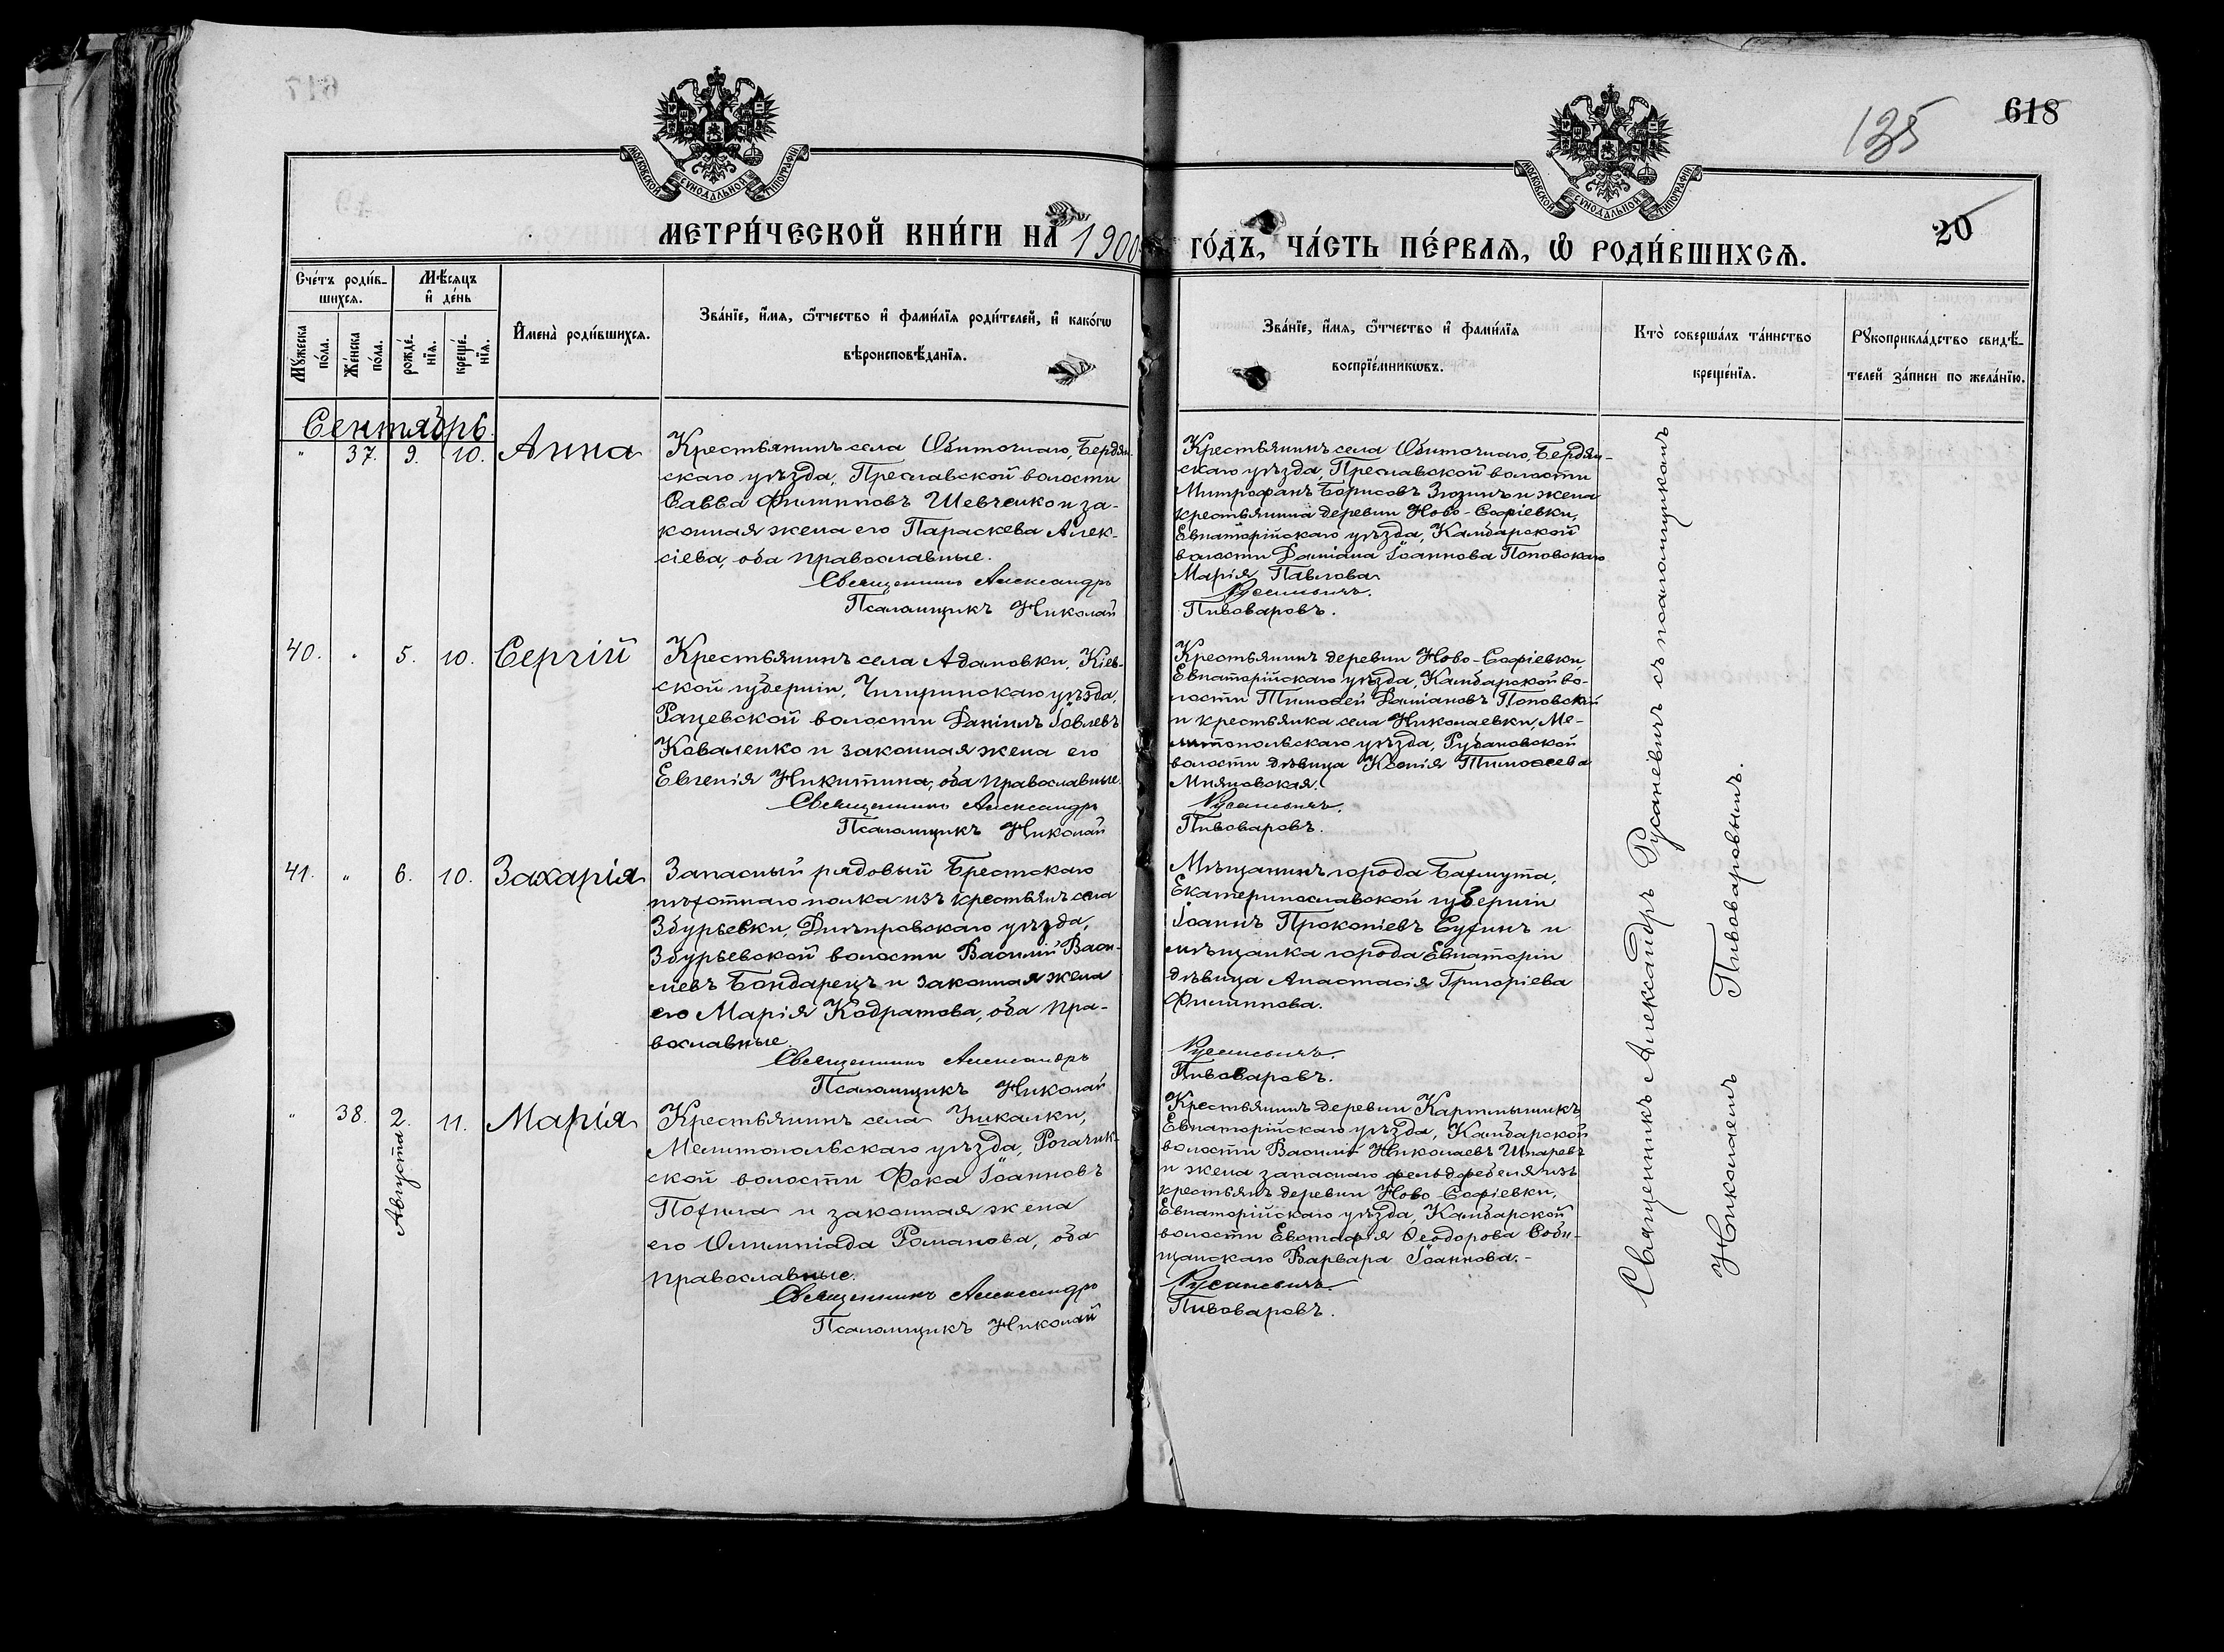 618
135
20
МОСКОВСКОЙ СѴНОДАЛЬНОЙ ТИПОГРАФІИ
МОСКОВСКОЙ СѴНОДАЛЬНОЙ ТИПОГРАФІИ
МЕТРИ́ЧЕСКОЙ КНИ́ГИ НА 1900 ГО́ДЪ, ЧА́СТЬ ПЕ́РВАѦ, Ѽ РОДИ́ВШИХСѦ.
Сче́тъ роди́в-
шихсѧ.
Мꙋ́жеска
по́ла.
Же́нска
по́ла.
Мѣ́сяцъ
и҆ де́нь
рожде́-
нїѧ.
креще́-
нїѧ.
И҆мена̀ роди́вшихсѧ.
Зва́нїе, и҆́мѧ, ѻ҆́тчество и҆ фами́лїѧ роди́телей, и҆ како́гѡ
вѣроисповѣ́данїѧ.
Зва́нїе, и҆́мѧ, ѻ҆́тчество и҆ фами́лїѧ
воспрїе́мникѡвъ.
Кто̀ соверша́лъ та́инство
креще́нїѧ.
Рꙋкоприкла́дство свидѣ́-
телей за́писи по жела́нїю.
Сентябрь.
" 37. 9. 10. Анна
Крестьянинъ села Обиточнаго, Бердян-
скаго уѣзда, Преславской волости
Савва Филипповъ Шевченко и за-
конная жена его Параскева Алек-
сіева, оба православные.
Священникъ Александръ
Псаломщикъ Николай
Крестьянинъ села Обиточнаго, Бердян-
скаго уѣзда, Преславской волости
Митрофанъ Борисовъ Зюзинъ и жена
крестьянина деревни Ново-Софіевки,
Евпаторійскаго уѣзда, Камбарской
волости Даміана Іоаннова Поповскаго
Марія Павлова
Русаневичъ.
Пивоваровъ.
40. " 5. 10. Сергій
Крестьянинъ села Адамовки, Кіев-
ской губерніи, Чигиринскаго уѣзда,
Рацевской волости Даніилъ Іовлевъ
Коваленко и законная жена его
Евгенія Никитина, оба православные.
Священникъ Александръ
Псаломщикъ Николай
Крестьянинъ деревни Ново-Софіевки,
Евпаторійскаго уѣзда, Камбарской во-
лости Тимоѳей Даміановъ Поповскій
и крестьянка села Николаевки, Ме-
литопольскаго уѣзда, Рубановской
волости дѣвица Ксенія Тимоѳеева
Русаневичъ.
Пивоваровъ.
41. " 6. 10. Захарія
Запасный рядовый Брестскаго
пѣхотнаго полка изъ крестьянъ села
Збурьевки, Днѣпровскаго уѣзда,
Збурьевской волости Василій Васи-
ліевъ Бондарецъ и законная жена
его Марія Кодратова, оба пра-
вославные.
Священникъ Александръ
Псаломщикъ Николай
Мѣщанинъ города Бахмута,
Екатеринославской губерніи
Іоаннъ Прокопіевъ Сухинъ и
мѣщанка города Евпаторіи
дѣвица Анастасія Григоріева
Филиппова.
Русаневичъ.
Пивоваровъ.
" 38. 2. Августа 11. Марія
Крестьянинъ села Ушкалки,
Мелитопольскаго уѣзда, Рогачик-
ской волости Фока Іоанновъ
Похила и законная жена
его Олимпіада Романова, оба
православные.
Священникъ Александръ
Псаломщикъ Николай
Крестьянинъ деревни
Евпаторійскаго уѣзда, Камбарской
волости Василій Николаевъ Шпаревъ
и жена запаснаго фельдфебеля изъ
крестьянъ деревни Ново-Софіевки,
Евпаторійскаго уѣзда, Камбарской
волости Евстафія Ѳеодорова Соби-
щанскаго Варвара Іоаннова.-
Русаневичъ.
Пивоваровъ.
Священникъ Александръ Русаневичъ съ псаломщикомъ
Николаемъ Пивоваровымъ.